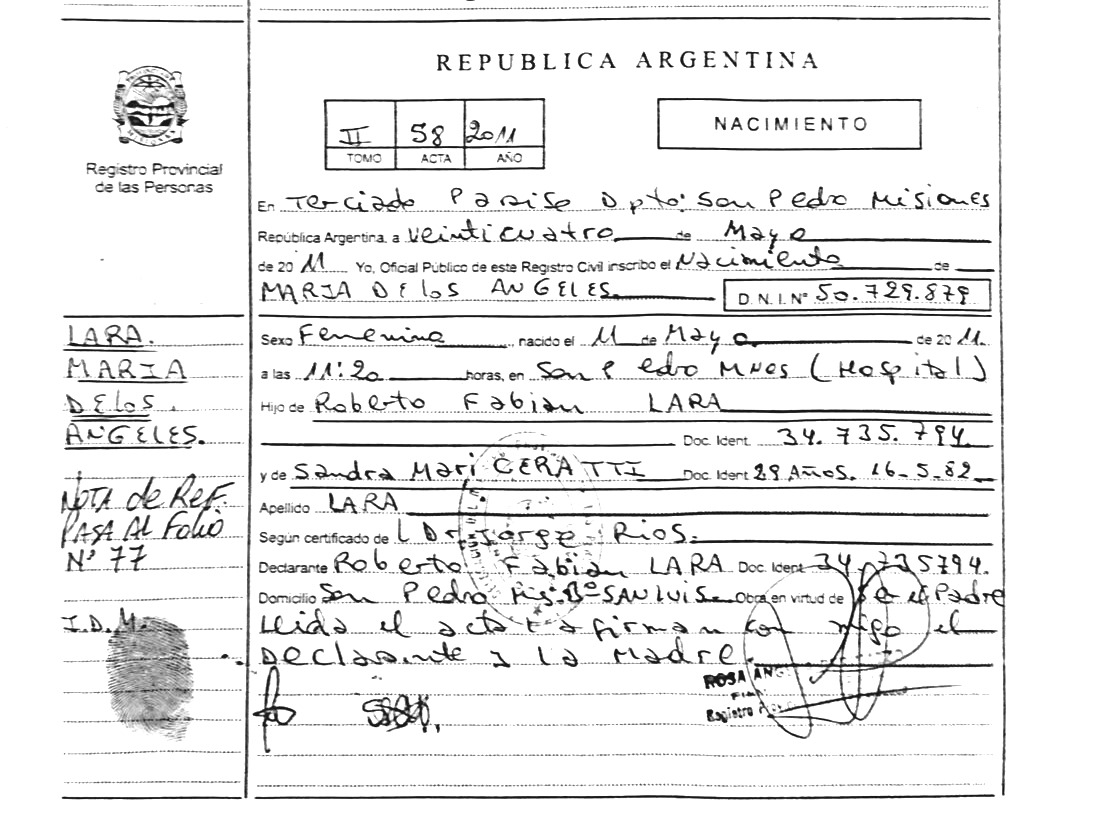 REPUBLICA ARGENTINA
II 58 2011
TOMO ACTA AÑO
NACIMIENTO
Registro Provincial
de las Personas
En Terciado Paraiso Dpto: San Pedro Misiones
República Argentina, a veinticuatro de Mayo
de 2011 Yo, Oficial Público de este Registro Civil inscribo el Nacimiento de
MARIA DElos ANGELES. D.N.I.Nº 50.729.879
Sexo Femenino, nacido el 11 de Mayo de 2011.
a las 11:20 horas, en San Pedro MNES (Hospital)
Hijo de Roberto Fabian LARA
Doc. Ident. 34.735.794.
y de Sandra Mari CERATTI Doc. Ident 29 AÑOS. 16-5-82
Apellido LARA
Según certificado de l Dr. Jorge Rios.
Declarante Roberto Fabian LARA Doc. Ident. 34.735794.
Domicilio San Pedro Mis: Bº SAN LUIS. Obra en virtud de Ser el Padre
Leida el acta la firman con migo el
Declarante y la Madre.
LARA.
MARIA
DElos.
ANGELES.
NOTA de Ref.
PASA Al Folio
Nº 77
I.D.M.
ROSA
Registro